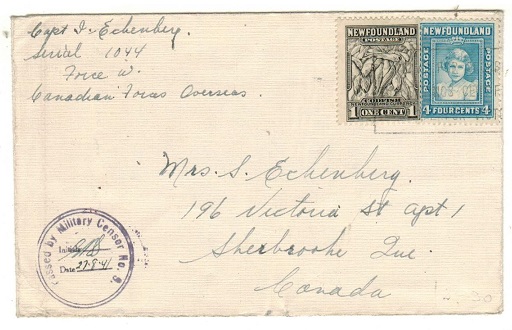 Capt I. Echenberg.
Serial 1044
Force W.
Canadian Forces Overseas.
NEWFOUNDLAND
POSTAGE
CODFISH
1 ONE CENT 1
NEWFOUNDLAND
POSTAGE POSTAGE
4 FOUR CENTS 4
Mrs. S. Echenberg
196 Victoria St apt 1
Sherbrooke Que.
Canada
Passed by Military Censor No. 9.
Initials
Date 27-9-41